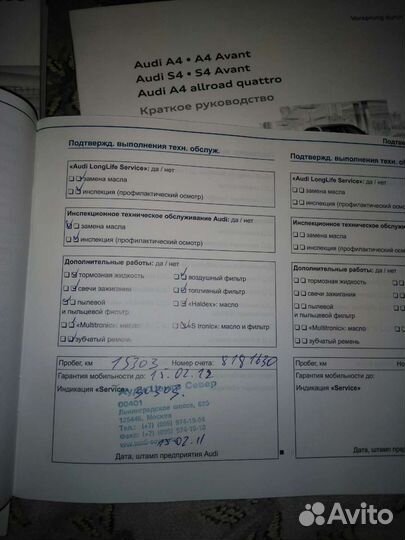 Vorsprung durch
Audi A4 • A4 Avant
Audi S4 • S4 Avant
Audi A4 allroad quattro
Краткое руководство
Подтвержд. выполнения техн. обслуж.
«Audi LongLife Service»: да / нет
замена масла
инспекция (профилактический осмотр)
Инспекционное техническое обслуживание Audi: да / нет
замена масла
инспекция (профилактический осмотр)
Дополнительные работы: да / нет
тормозная жидкость воздушный фильтр
свечи зажигания топливный фильтр
пылевой «Haldex»: масло
и пыльцевой фильтр
«Multitronic»: масло «S tronic»: масло и фильтр
зубчатый ремень
Пробег, км 15303 Номер счета: 8191630
Гарантия мобильности до: 15.02.12
Индикация «Service»: 30303
Ауди Центр Север
00401
Ленинградское шоссе,
125445, Москва
Тел.: +7 (495)
Факс: +7 (495)
15.02.11
Дата, штамп предприятия Audi
Подтвержд. выполнения техн. обслуж.
«Audi LongLife Service»: да / нет
замена масла
инспекция (профилактический
Инспекционное техническое
замена масла
инспекция (профилактический
Дополнительные работы: да / нет
тормозная жидкость
свечи зажигания
пылевой
и пыльцевой фильтр
«Multitronic»: масло
зубчатый ремень
Пробег, км
Гарантия мобильности до:
Индикация «Service»
Дата,
Avito